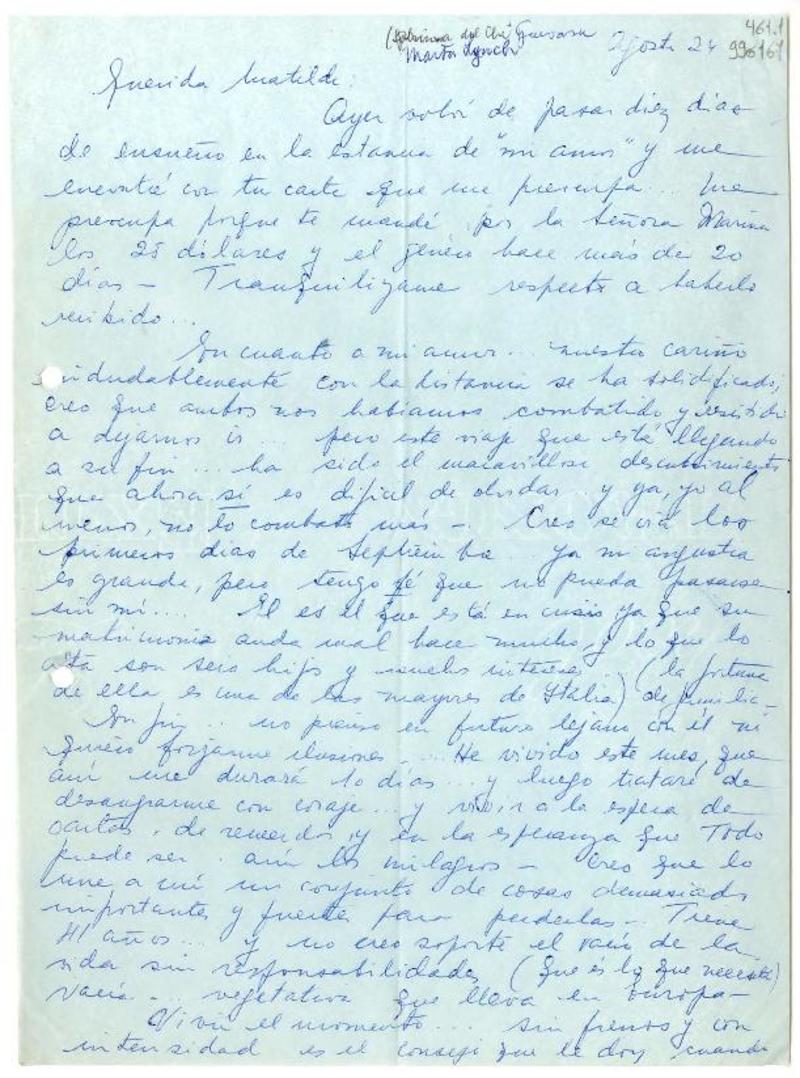 (sobrina del Che Guevara
Marta Lynch
461.1
996161
Agosto 24
Querida Matilde:
Ayer volví de pasar diez días
de ensueño en la estancia de "mi amor" y me
encontré con tu carta que me preocupa... Me
preocupa porque te mandé por la Señora Marina
los 25 dólares y el género hace más de 20
días - Tranquilízame respecto a haberlo
recibido...
En cuanto a mi amor... nuestro cariño
indudablemente con la distancia se ha solidificado;
creo que ambos nos habíamos combatido y resistido
a dejarnos ir... pero este viaje que está llegando
a su fin... ha sido el maravilloso descubrimiento
que ahora sí es difícil de olvidar y ya, yo al
menos, no lo combato más -. Creo se irá los
primeros días de Septiembre... ya mi angustia
es grande, pero tengo fé que no pueda pasarse
sin mí.... El es el que está en crisis ya que su
matrimonio anda mal hace mucho, y lo que lo
ata son seis hijos y muchos intereses.. (la fortuna
de ella es una de las mayores de Italia) de familia -
En fin.. no pienso en futuro lejano con él ni
quiero forjarme ilusiones.... He vivido este mes, que
aún me durará 10 días... y luego trataré de
desangrarme con coraje... y vivir a la espera de
cartas, de recuerdos, y en la esperanza que Todo
puede ser.. aún los milagros - Creo que lo
une a mí un conjunto de cosas demasiado
importantes y fuertes para perderlas - Tiene
41 años... y no creo soporte el vacío de la
vida sin responsabilidades (que es lo que necesita)
vacía... vegetativa que lleva en Europa -
Vivir el momento.... sin frenos y con
intensidad es el consejo que te doy cuando